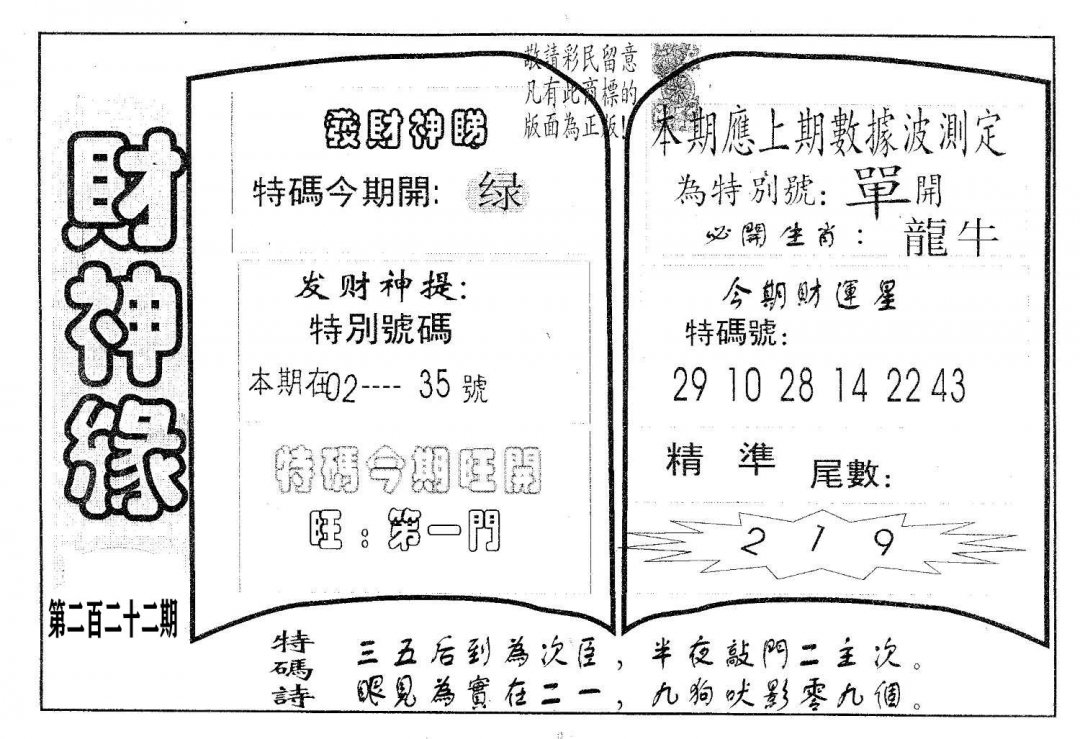 財神緣
第二百二十二期
敬請彩民留意
凡有此商標的
版面為正版!
發財神睇
特碼今期開: 绿
发财神提:
特別號碼
本期在02---- 35號
特碼今期旺開
旺:第一門
本期應上期數據波測定
為特別號:單開
必開生肖:龍牛
今期財運星
特碼號:
29 10 28 14 22 43
精準 尾數:
2 1 9
特碼詩
三五后到為次臣,半夜敲門二主次。
眼見為實在二一,九狗吠影零九個。